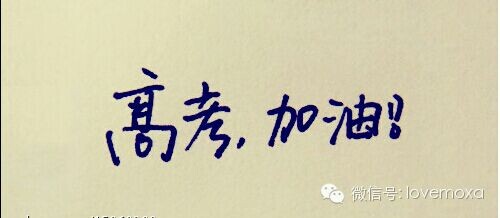 高考,加油!!
微信号: lovemoxa